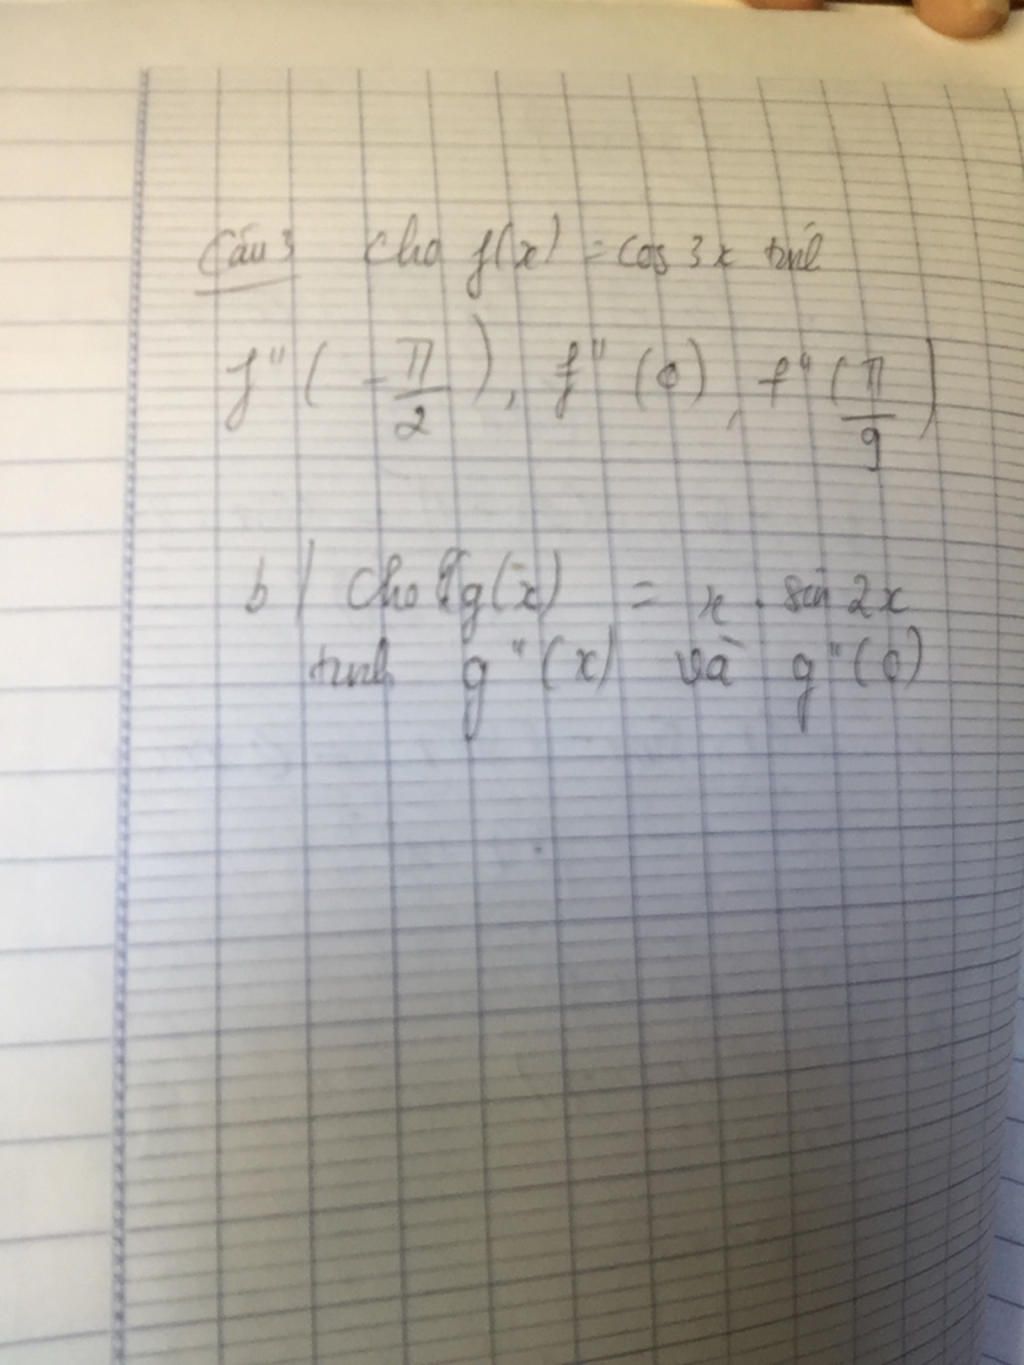 Câu 3 Cho f(x) = cos 3x tính
f"(-π/2), f"(0), f"(π/9)
b/ Cho g(x) = x . sin 2x
tính g"(x) và g"(0)